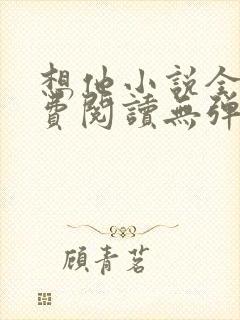 想他小說全
費閱讀無彈
顧青茗